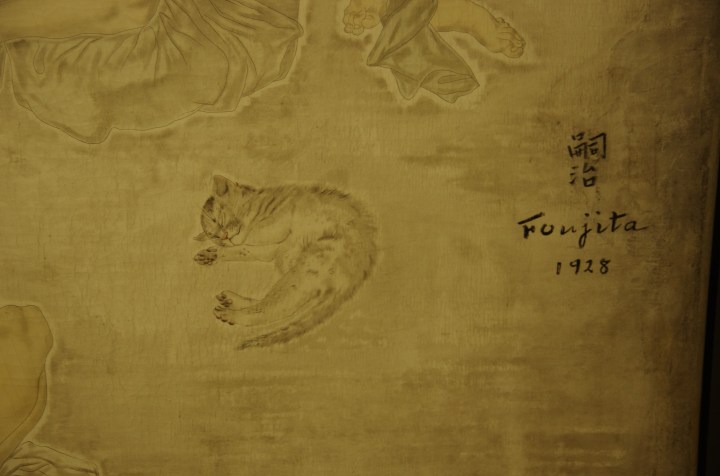 嗣
治
Foujita
1928